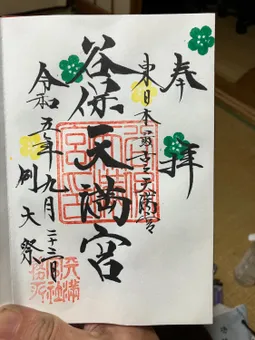 奉拝
東日本最古之天満宮
谷保天満宮
令和五年九月二十三日
例大祭